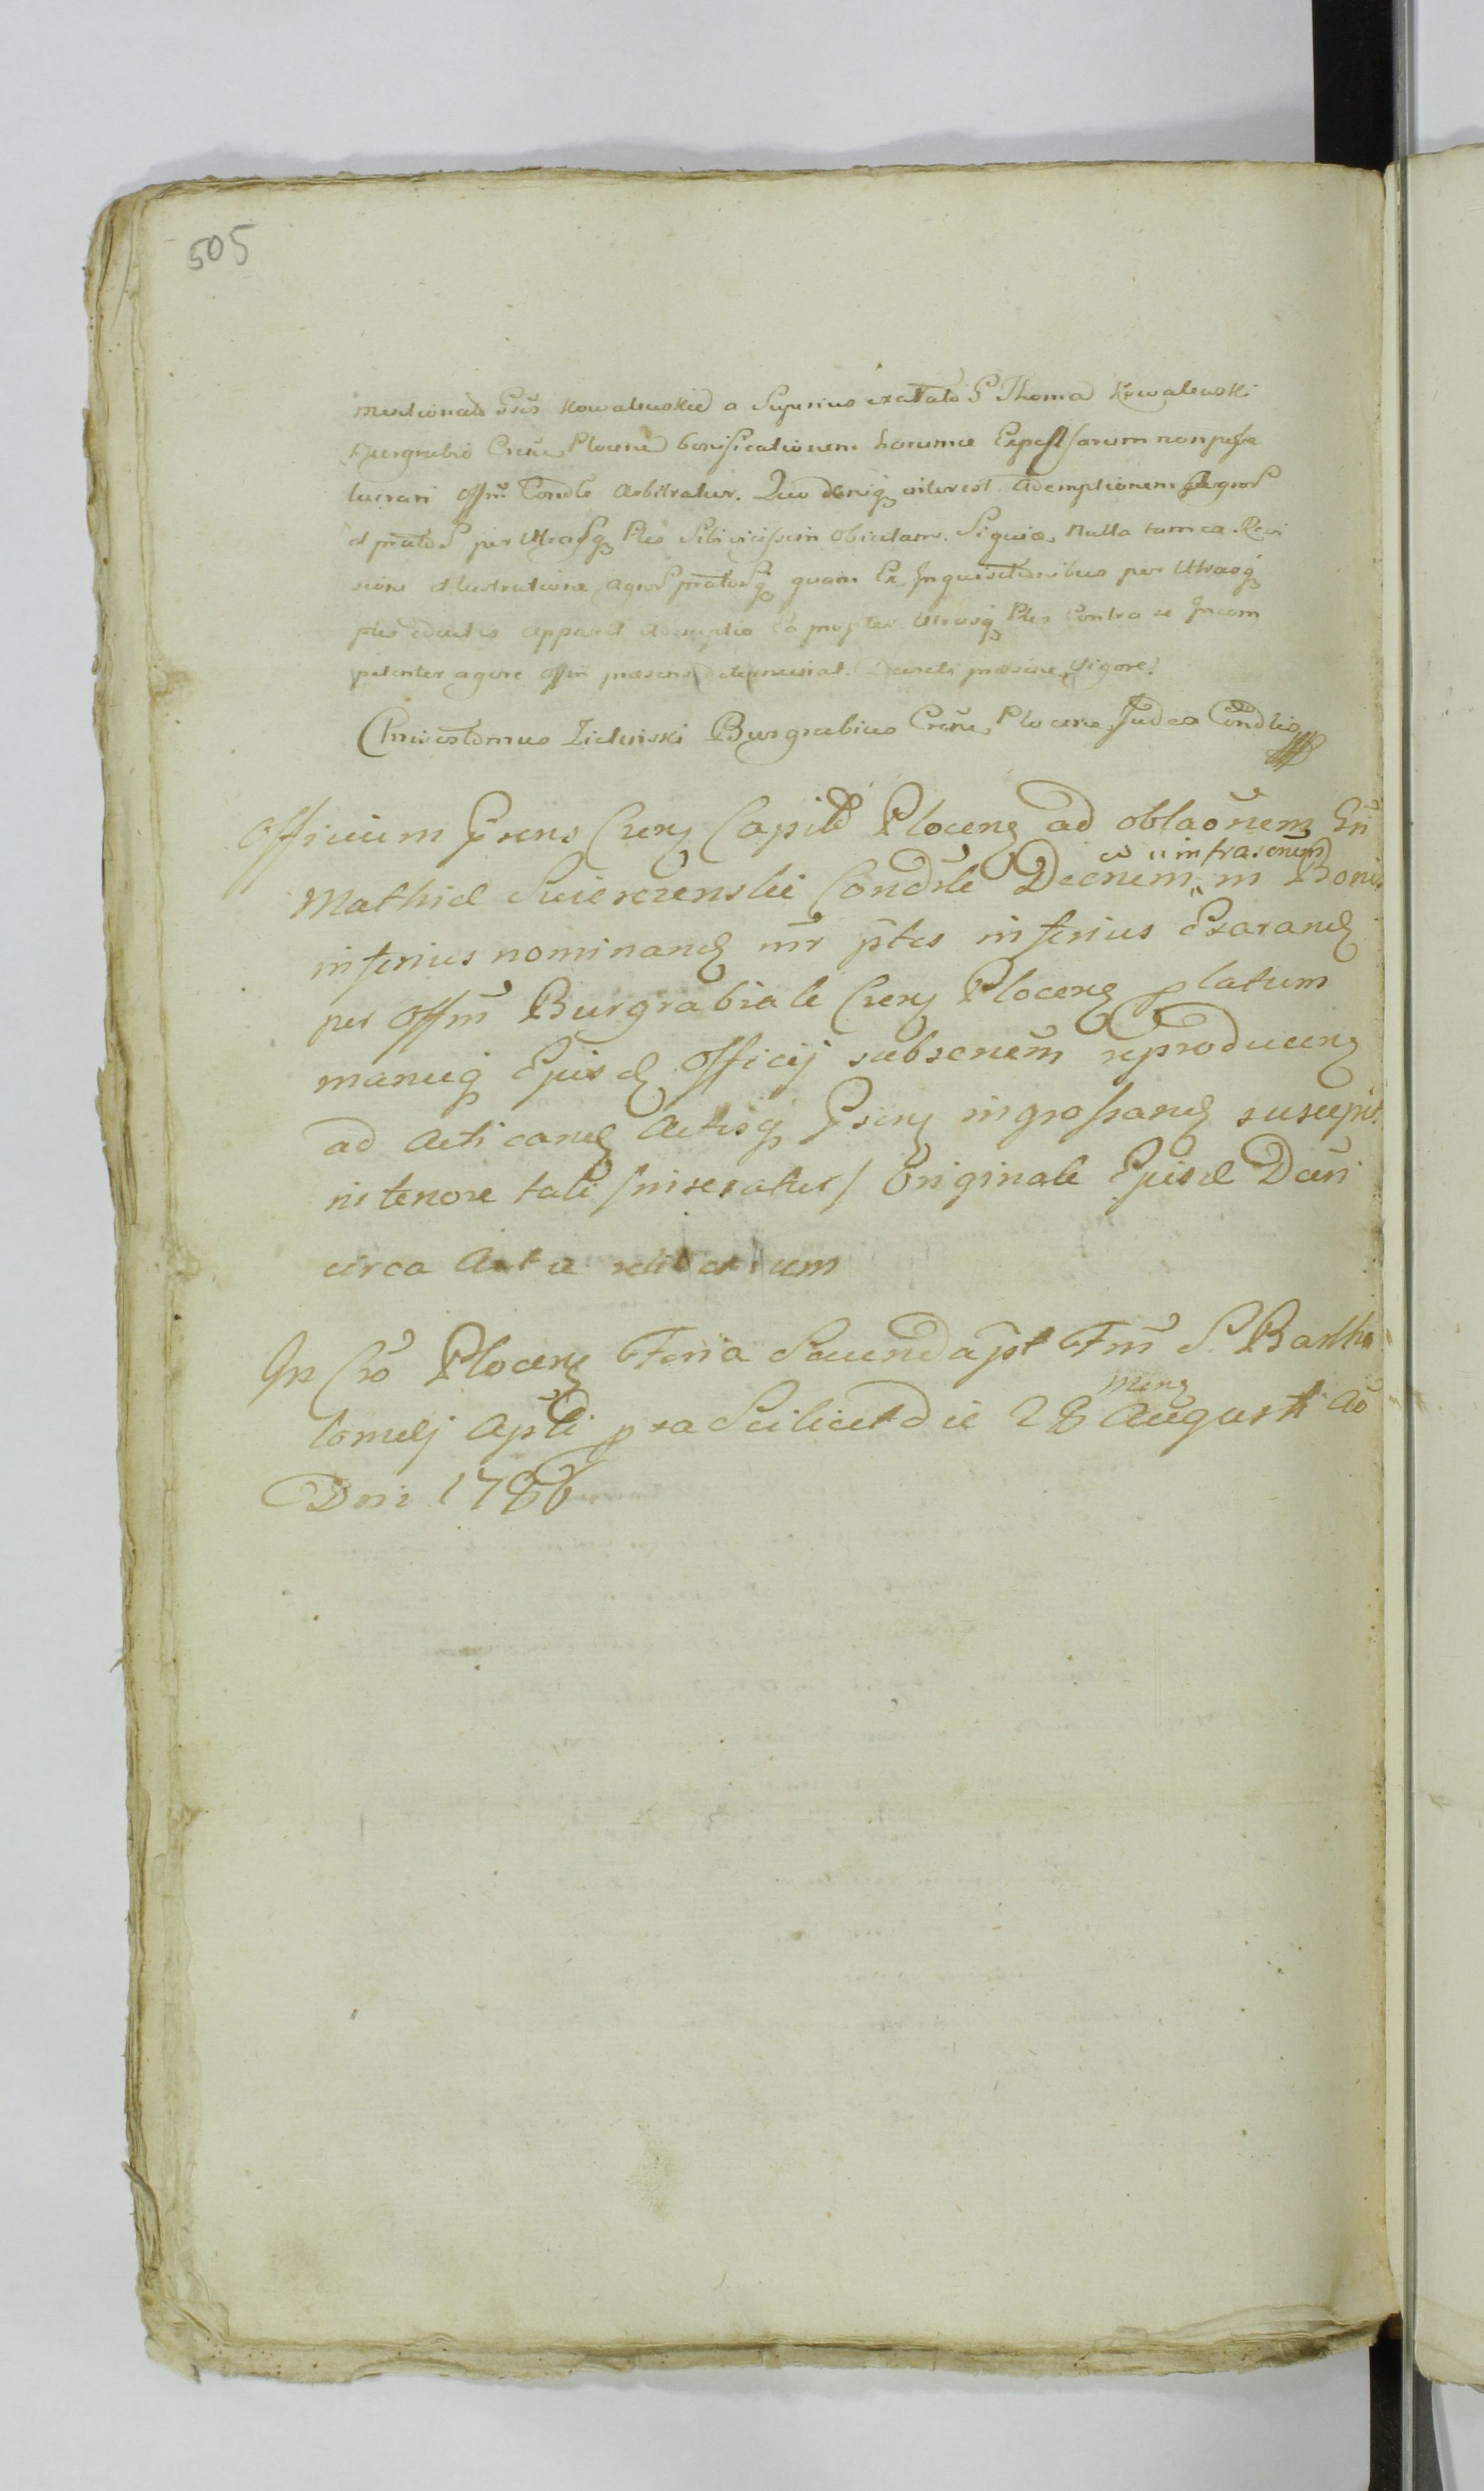 505
mentionato Kowalewskie a Superius exarato G Thoma Kowalewski
Burgrabio Crēne Plocene bonificationem harumce Expensarum non posse
lucrari Offm Condle arbitratur. Quo deniq interest ademptionem Agror
et prator per Utrasq Ptes Sibi vicissim obiectam. Siquidem Nulla tam ea Revi
sione et lustratione agror pratorq quam Ex Inquisitionibus per Utrasq
ptes eductis apparet ademptio Ea propter Utrasq Ptes Contra se Incom
petenter agere Offm praesens Decreti praesentis Vigore
Chrisostomus Zieliński Burgrabius Crēne Plocene Judex Condlis
Officium Gsens Crens Capitle Plocens ad oblaonem Gn
cū infrascriptū
Mathiae Swierczenski Condle Decnem in Bonis
inferius nominand inr ptes inferius Exarand
per Offm Burgrabiale Crens Plocens platum
manuq Ejusd Officij subscriptū reproducens
ad Acticand Actisq Gsens ingrossand suscepit
in tenore tali /inseratur/ Originale Ejusd Dcti
circa Acta relictum
In Cro Plocens Feria Secunda pst Fm S. Bartho
mens
lomaej Apli pxa Scilicet die 28 Augusti Ao
Dni 1786